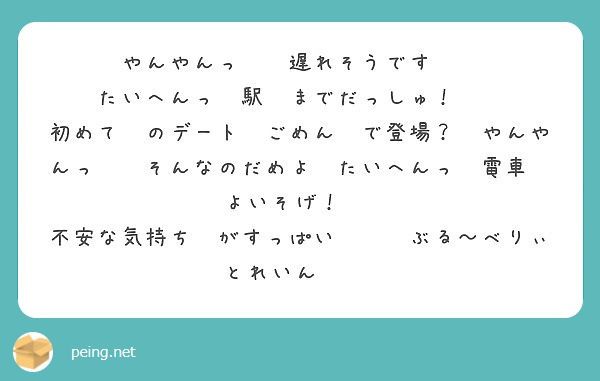 やんやんっ　　遅れそうです
たいへんっ　駅　までだっしゅ！
初めて　のデート　ごめん　で登場？　やんや
んっ　　そんなのだめよ　たいへんっ　電車
よいそげ！
不安な気持ち　がすっぱい　　　ぶる〜べりぃ
とれいん
peing.net